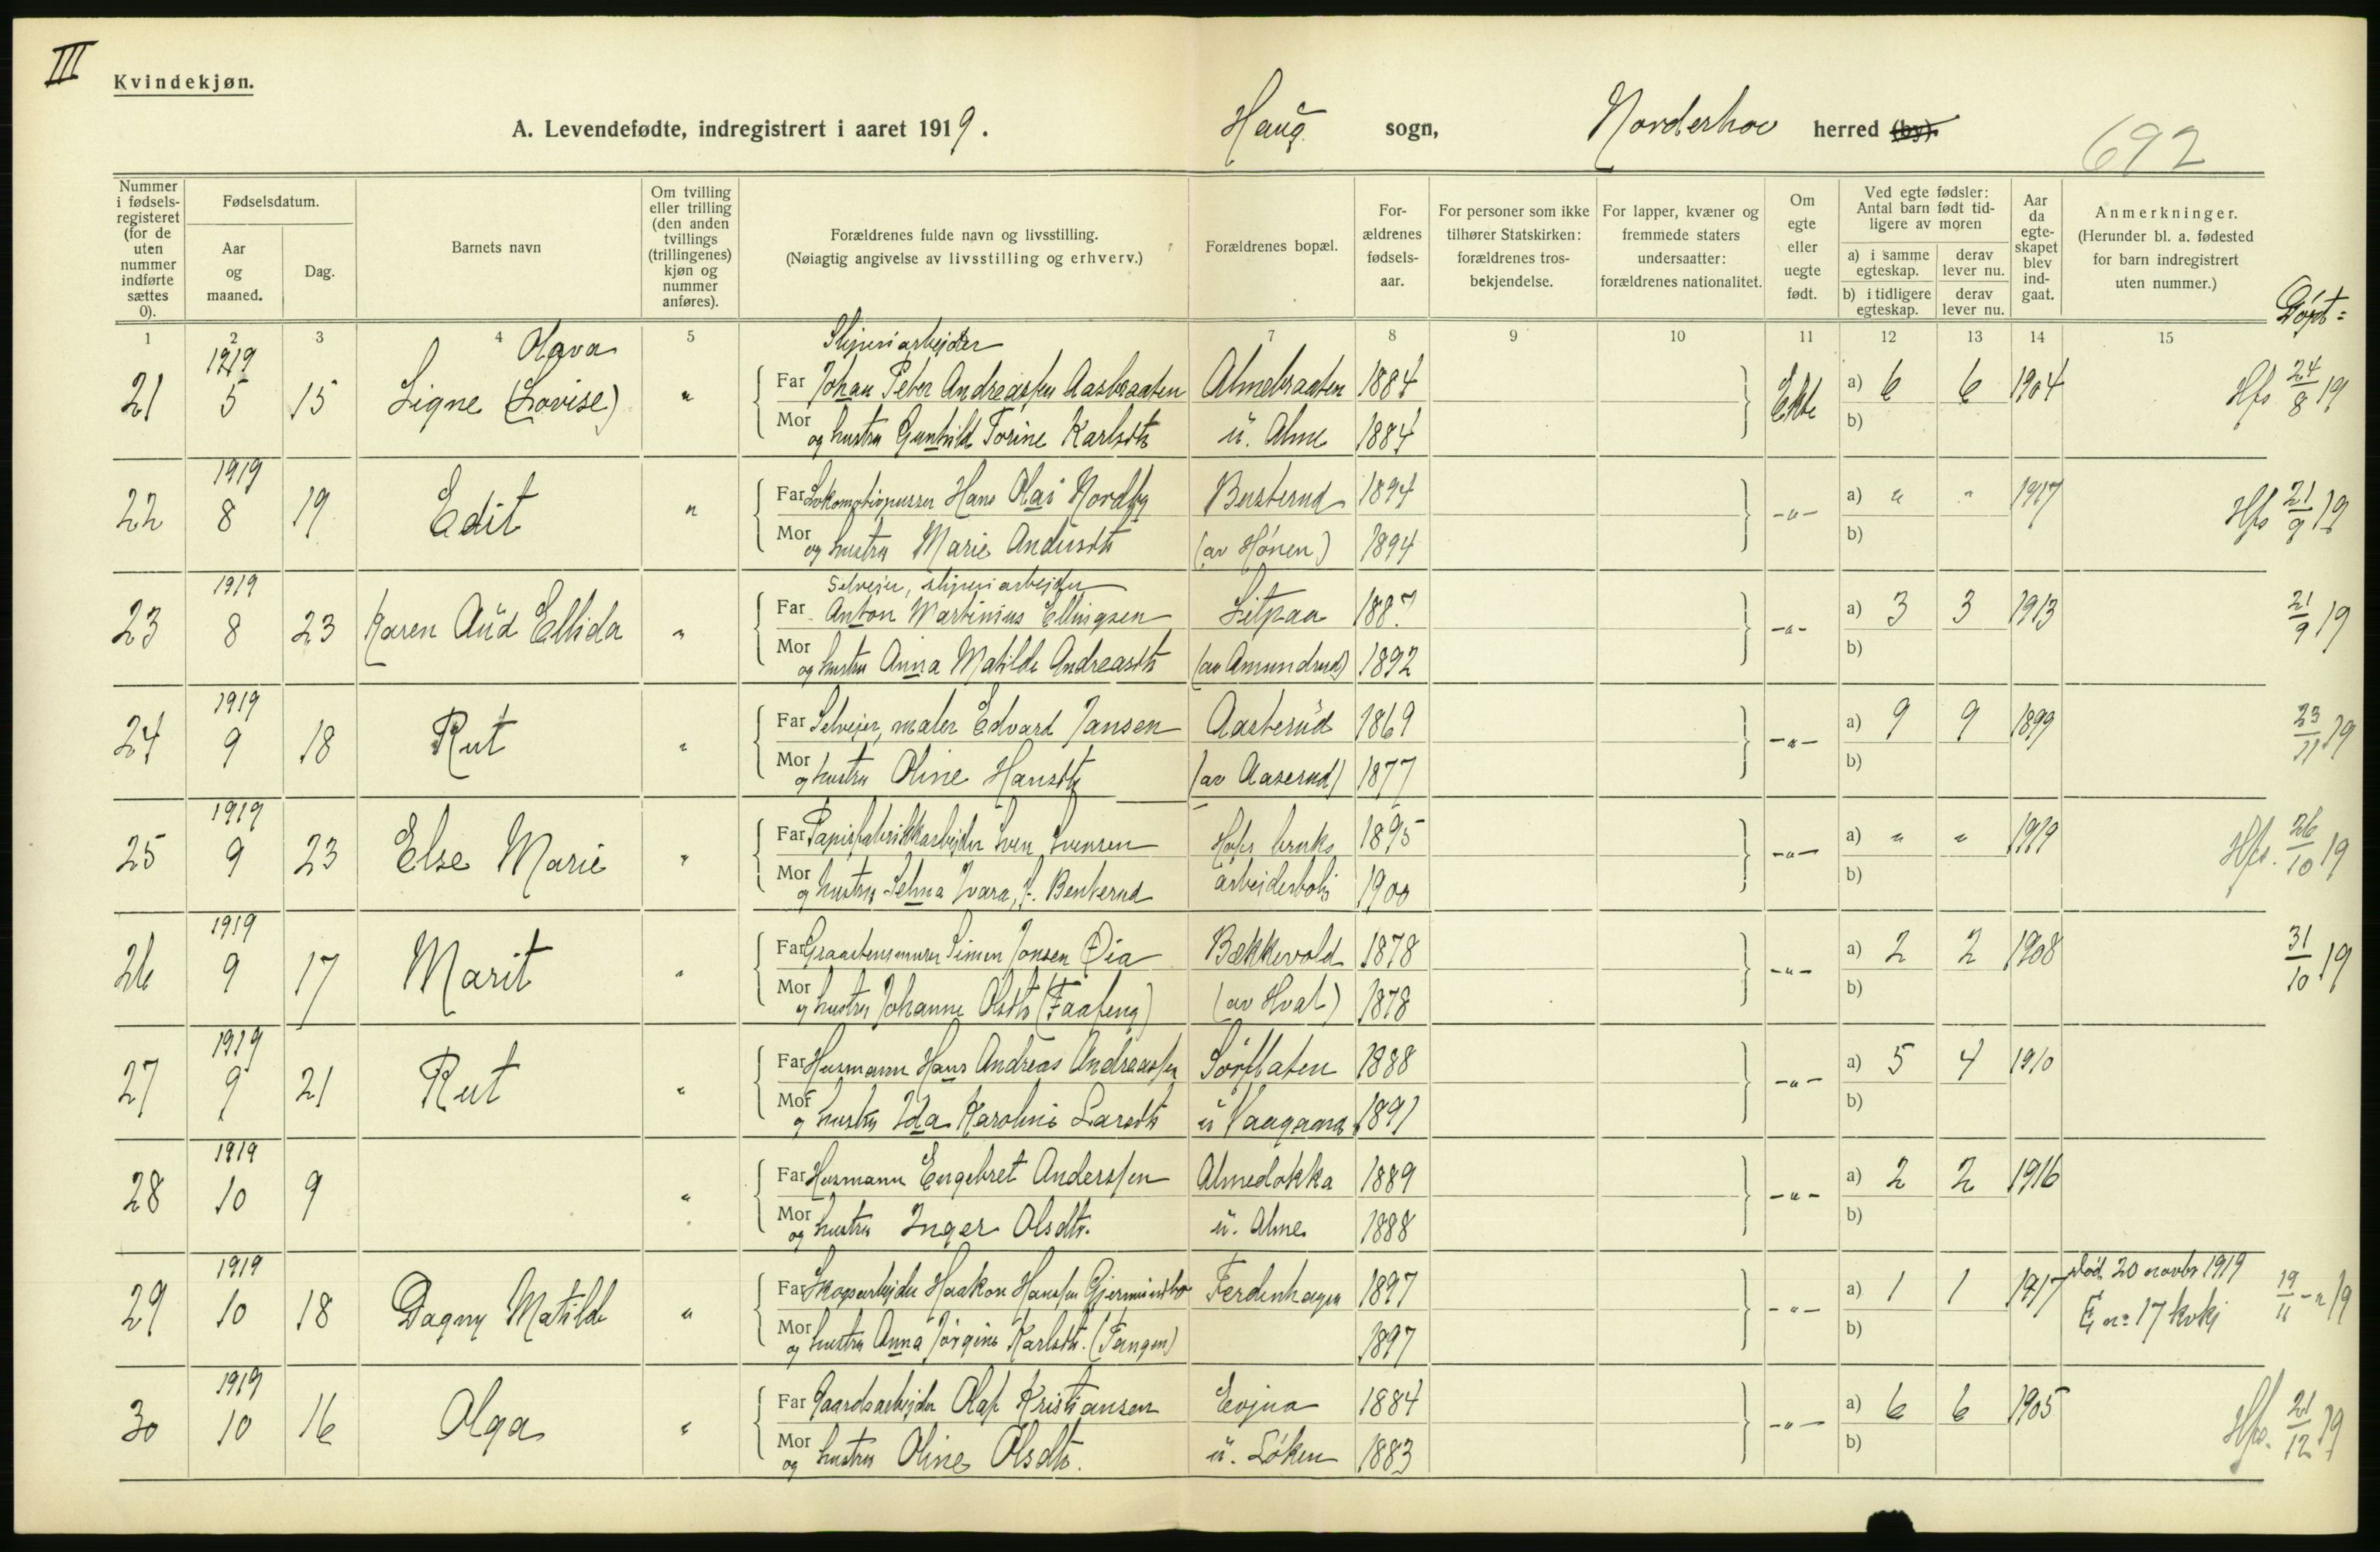 III
Kvindekjøn.
A. Levendefødte, indregistrert i aaret 1919. Haug sogn, Norderhov herred (by).
692
Nummer i fødsels-registeret (for de uten nummer indførte sættes 0).
Fødselsdatum.
Aar og maaned.
Dag.
Barnets navn
Om tvilling eller trilling (den anden tvillings (trillingenes) kjøn og nummer anføres).
Forældrenes fulde navn og livsstilling.
(Nøiagtig angivelse av livsstilling og erhverv.)
Forældrenes bopæl.
For-ældrenes fødsels-aar.
For personer som ikke tilhører Statskirken: forældrenes tros-bekjendelse.
For lapper, kvæner og fremmede staters undersaatter: forældrenes nationalitet.
Om egte eller uegte født.
Ved egte fødsler: Antal barn født tid-ligere av moren
a) i samme egteskap.
derav lever nu.
b) i tidligere egteskap.
derav lever nu.
Aar da egte-skapet blev ind-gaat.
Anmerkninger.
(Herunder bl. a. fødested for barn indregistrert uten nummer.)
Døpt =
1 2 3 4 5 7 8 9 10 11 12 13 14 15
1919 Olava Sliperiarbejder
21 5 15 Signe (Lovise) " Far Johan Peter Andreassen Aasbraaten Almebraaten 1884 Ekte a) 6 6 1904 Hfs 24/8 19
Mor og hustru Gunhild Torine Karlsdtr u. Alme 1884 b)
1919
22 8 19 Edit " Far Lokomotivpusser Hans Olai Nordby Busterud 1894 -"- a) " " 1917 Hfs 21/9 19
Mor og hustru Marie Andersdtr (av Hønen) 1894 b)
1919 Selveier, sliperiarbejder
23 8 23 Karen Aud Ellida " Far Anton Martinius Ellingsen Litpaa 1887 -"- a) 3 3 1913 21/9 19
Mor og hustru Anna Matilde Andreasdtr (av Amundrud) 1892 b)
1919
24 9 18 Rut " Far Selveier, maler Edvard Jansen Aasterud 1869 -"- a) 9 9 1899 23/11 19
Mor og hustru Oline Hansdtr (av Aaserud) 1877 b)
1919
25 9 23 Else Marie " Far Papirfabrikkarbejder Sven Svensen Hofs bruks 1895 -"- a) " " 1919 Hfs. 26/10 19
Mor og hustru Selma Ivara, f. Benterud arbejderbolig 1900 b)
1919
26 9 17 Marit " Far Graastensmurer Simen Jonsen Øia Bækkevold 1878 -"- a) 2 2 1908 31/10 19
Mor og hustru Johanne Olsdtr (Faafeng) (av Hval) 1878 b)
1919
27 9 21 Rut " Far Husmann Hans Andreas Andreassen Sørflaten 1888 -"- a) 5 4 1910
Mor og hustru Ida Karoline Larsdtr u Vaagaard 1891 b)
1919
28 10 9 " Far Husmann Engebret Anderssen Almedokka 1889 -"- a) 2 2 1916
Mor og hustru Inger Olsdtr. u. Alme 1888 b)
1919
29 10 18 Dagny Matilde " Far Skogsarbejder Haakon Hanssen Gjermundbo Ferdenhagen 1897 -"- a) 1 1 1917 død 20 novbr 1919 19/11 -"- 19
Mor og hustru Anna Jørgine Karlsdtr. (Tangen) 1897 b) E nº 17 kvkj
1919
30 10 16 Olga " Far Gaardsarbejder Olaf Kristiansen Evjua 1884 -"- a) 6 6 1905 Hfs. 21/12 19
Mor og hustru Oline Olsdtr. u. Løken 1883 b)